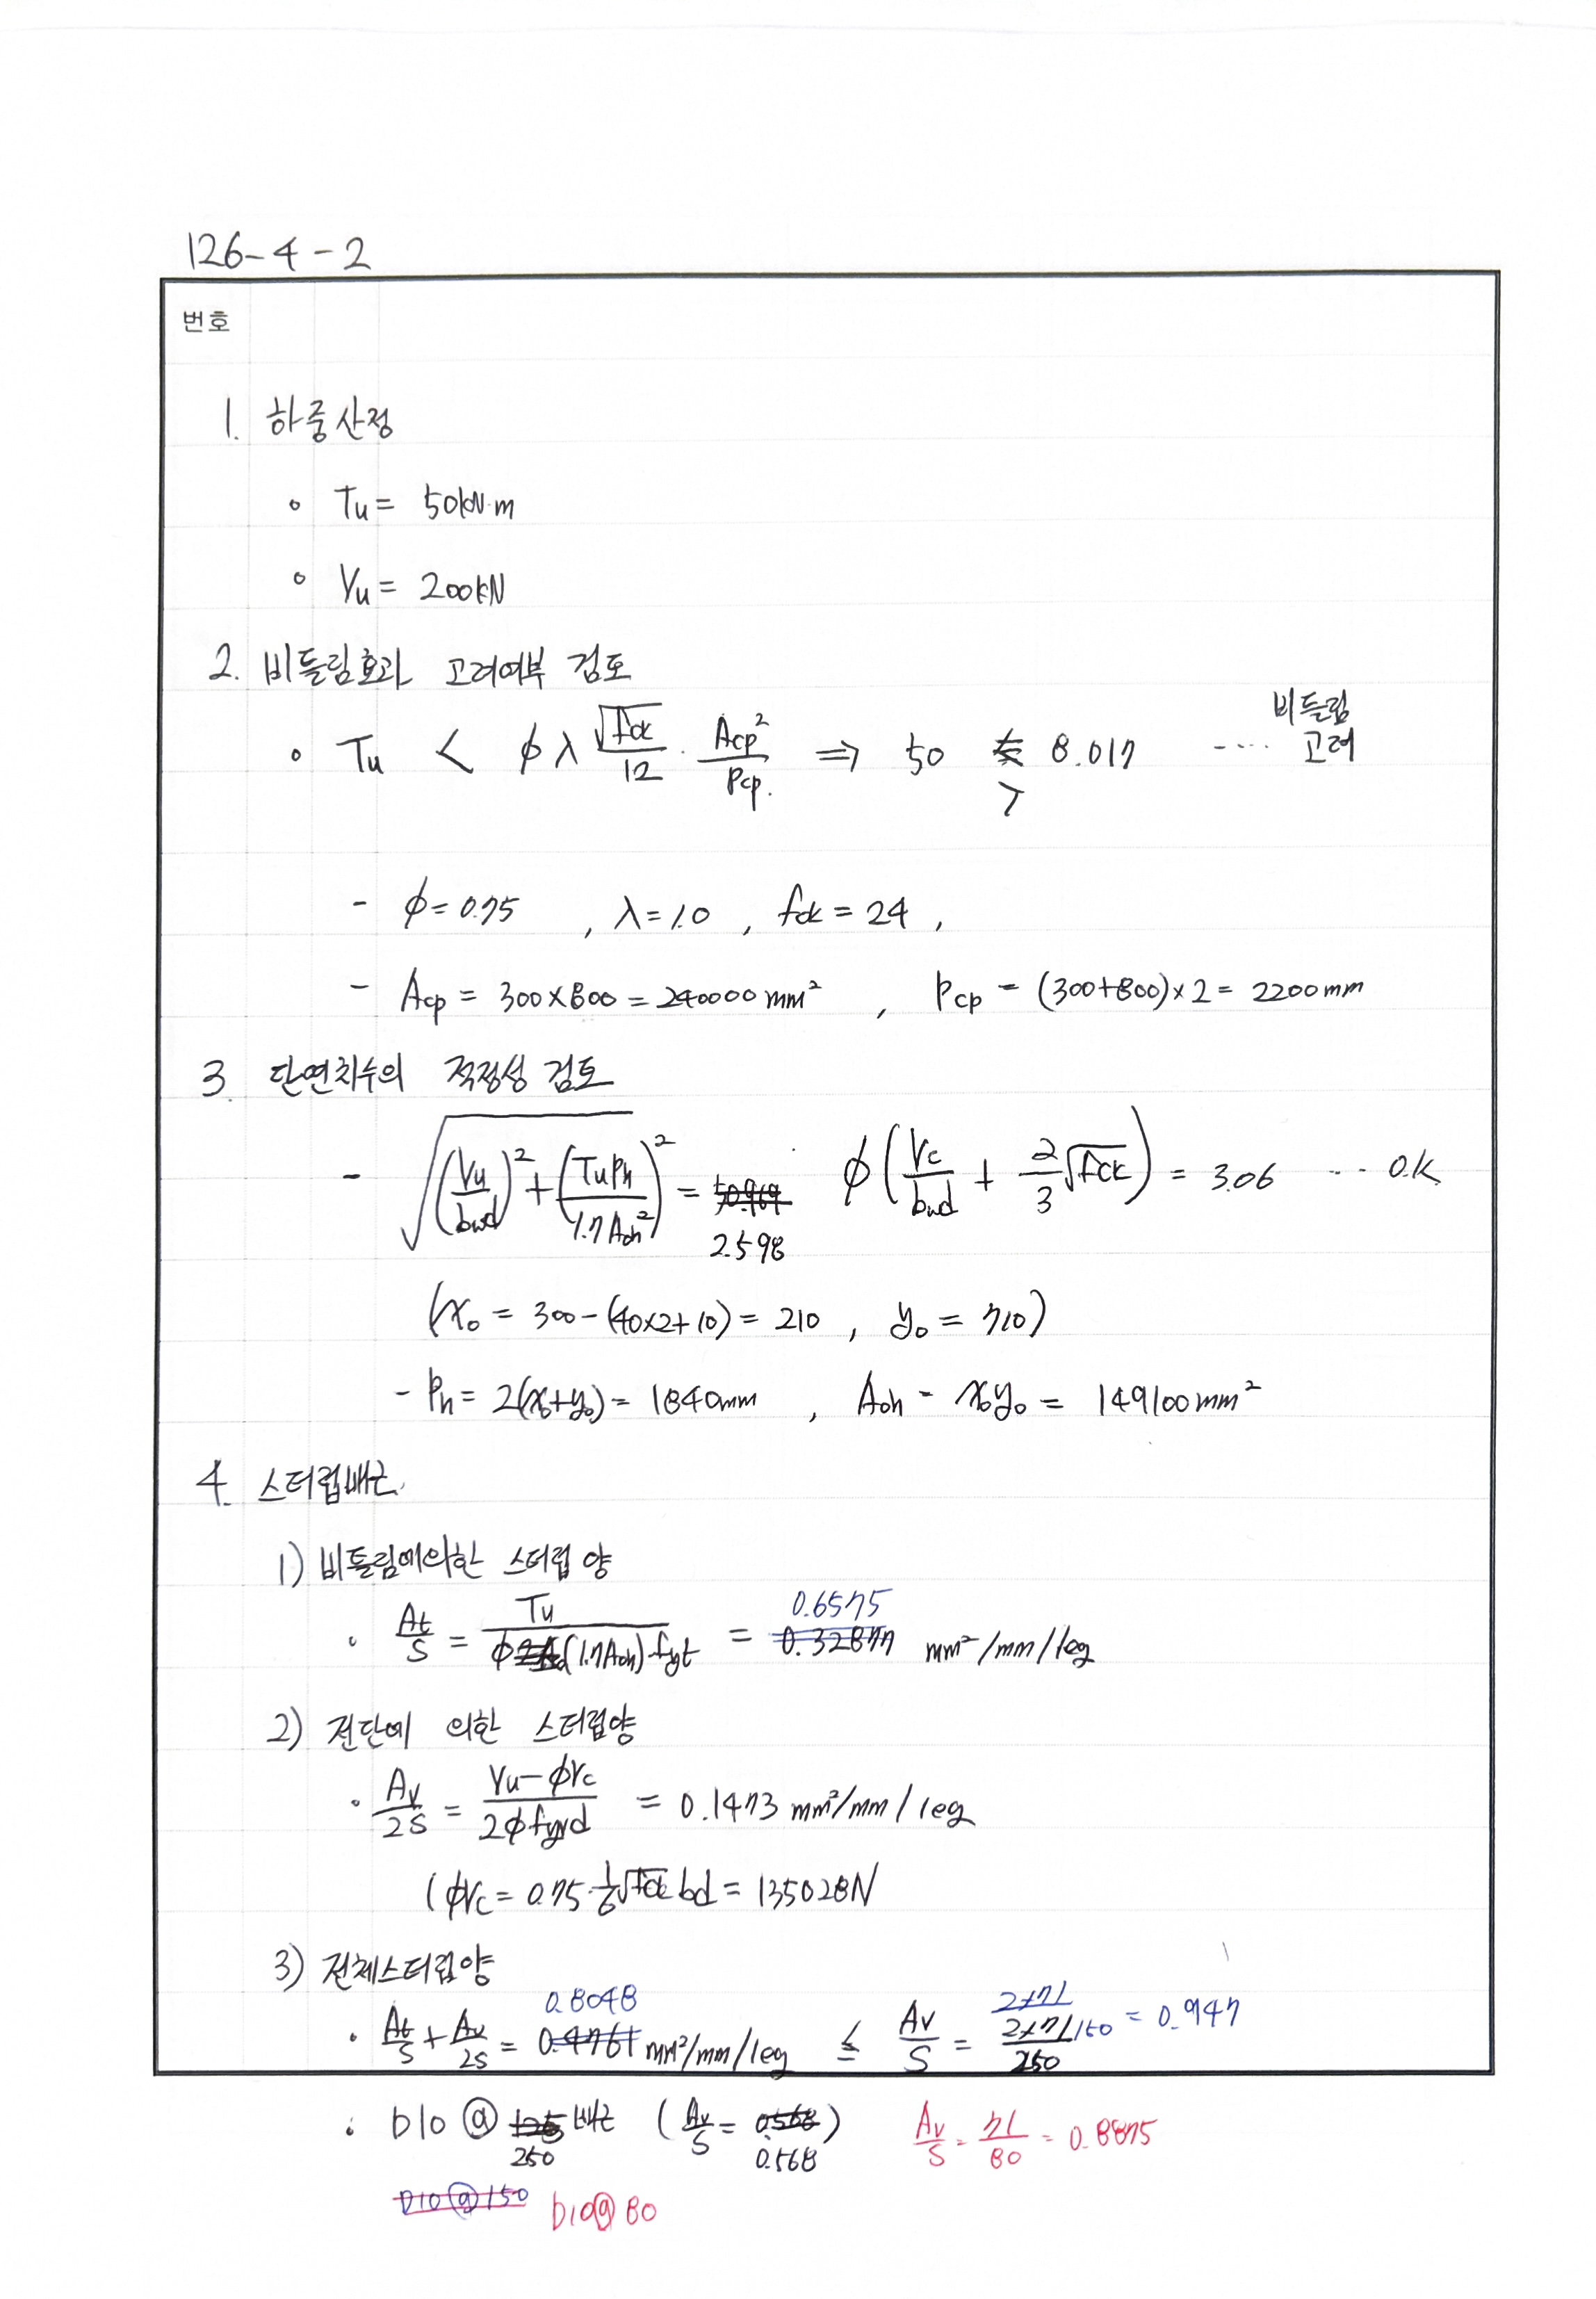 126-4-2
번호
1. 하중산정
∘ Tu = 50kN·m
∘ Vu = 200kN
2. 비틀림효과 고려여부 검토
∘ Tu < φλ √fck/12 · Acp²/Pcp. ⇒ 50 > 8.017 ---- 비틀림 고려
- φ = 0.75 , λ = 1.0 , fck = 24 ,
- Acp = 300×800 = 240000 mm² , Pcp = (300+800)×2 = 2200mm
3. 단면치수의 적정성 검토
- √((Vu/bwd)² + (TuPh/1.7Aoh²)²) = 50.969 2.598 φ(Vc/bwd + 2/3 √fck) = 3.06 --- O.K
(x₀ = 300-(40×2+10) = 210 , y₀ = 710)
- Ph = 2(x₀+y₀) = 1840mm , Aoh = x₀y₀ = 149100mm²
4. 스터럽배근
1) 비틀림에의한 스터럽 양
· At/S = Tu/φ(1.7Aoh)·fyt = 0.32877 0.6575 mm²/mm/leg
2) 전단에 의한 스터럽양
· Av/2S = Vu-φVc/2φfyd = 0.1473 mm²/mm/leg
(φVc = 0.75·1/6√fck bd = 135028N
3) 전체스터럽양
· At/S + Av/2S = 0.4761 0.8048 mm²/mm/leg ≤ Av/S = 2×71/250 2×71/150 = 0.947
∴ D10 @ 125 250 배근 (Av/S = 0.568 0.568) Av/S = 71/80 = 0.8875
D10@150 D10@80